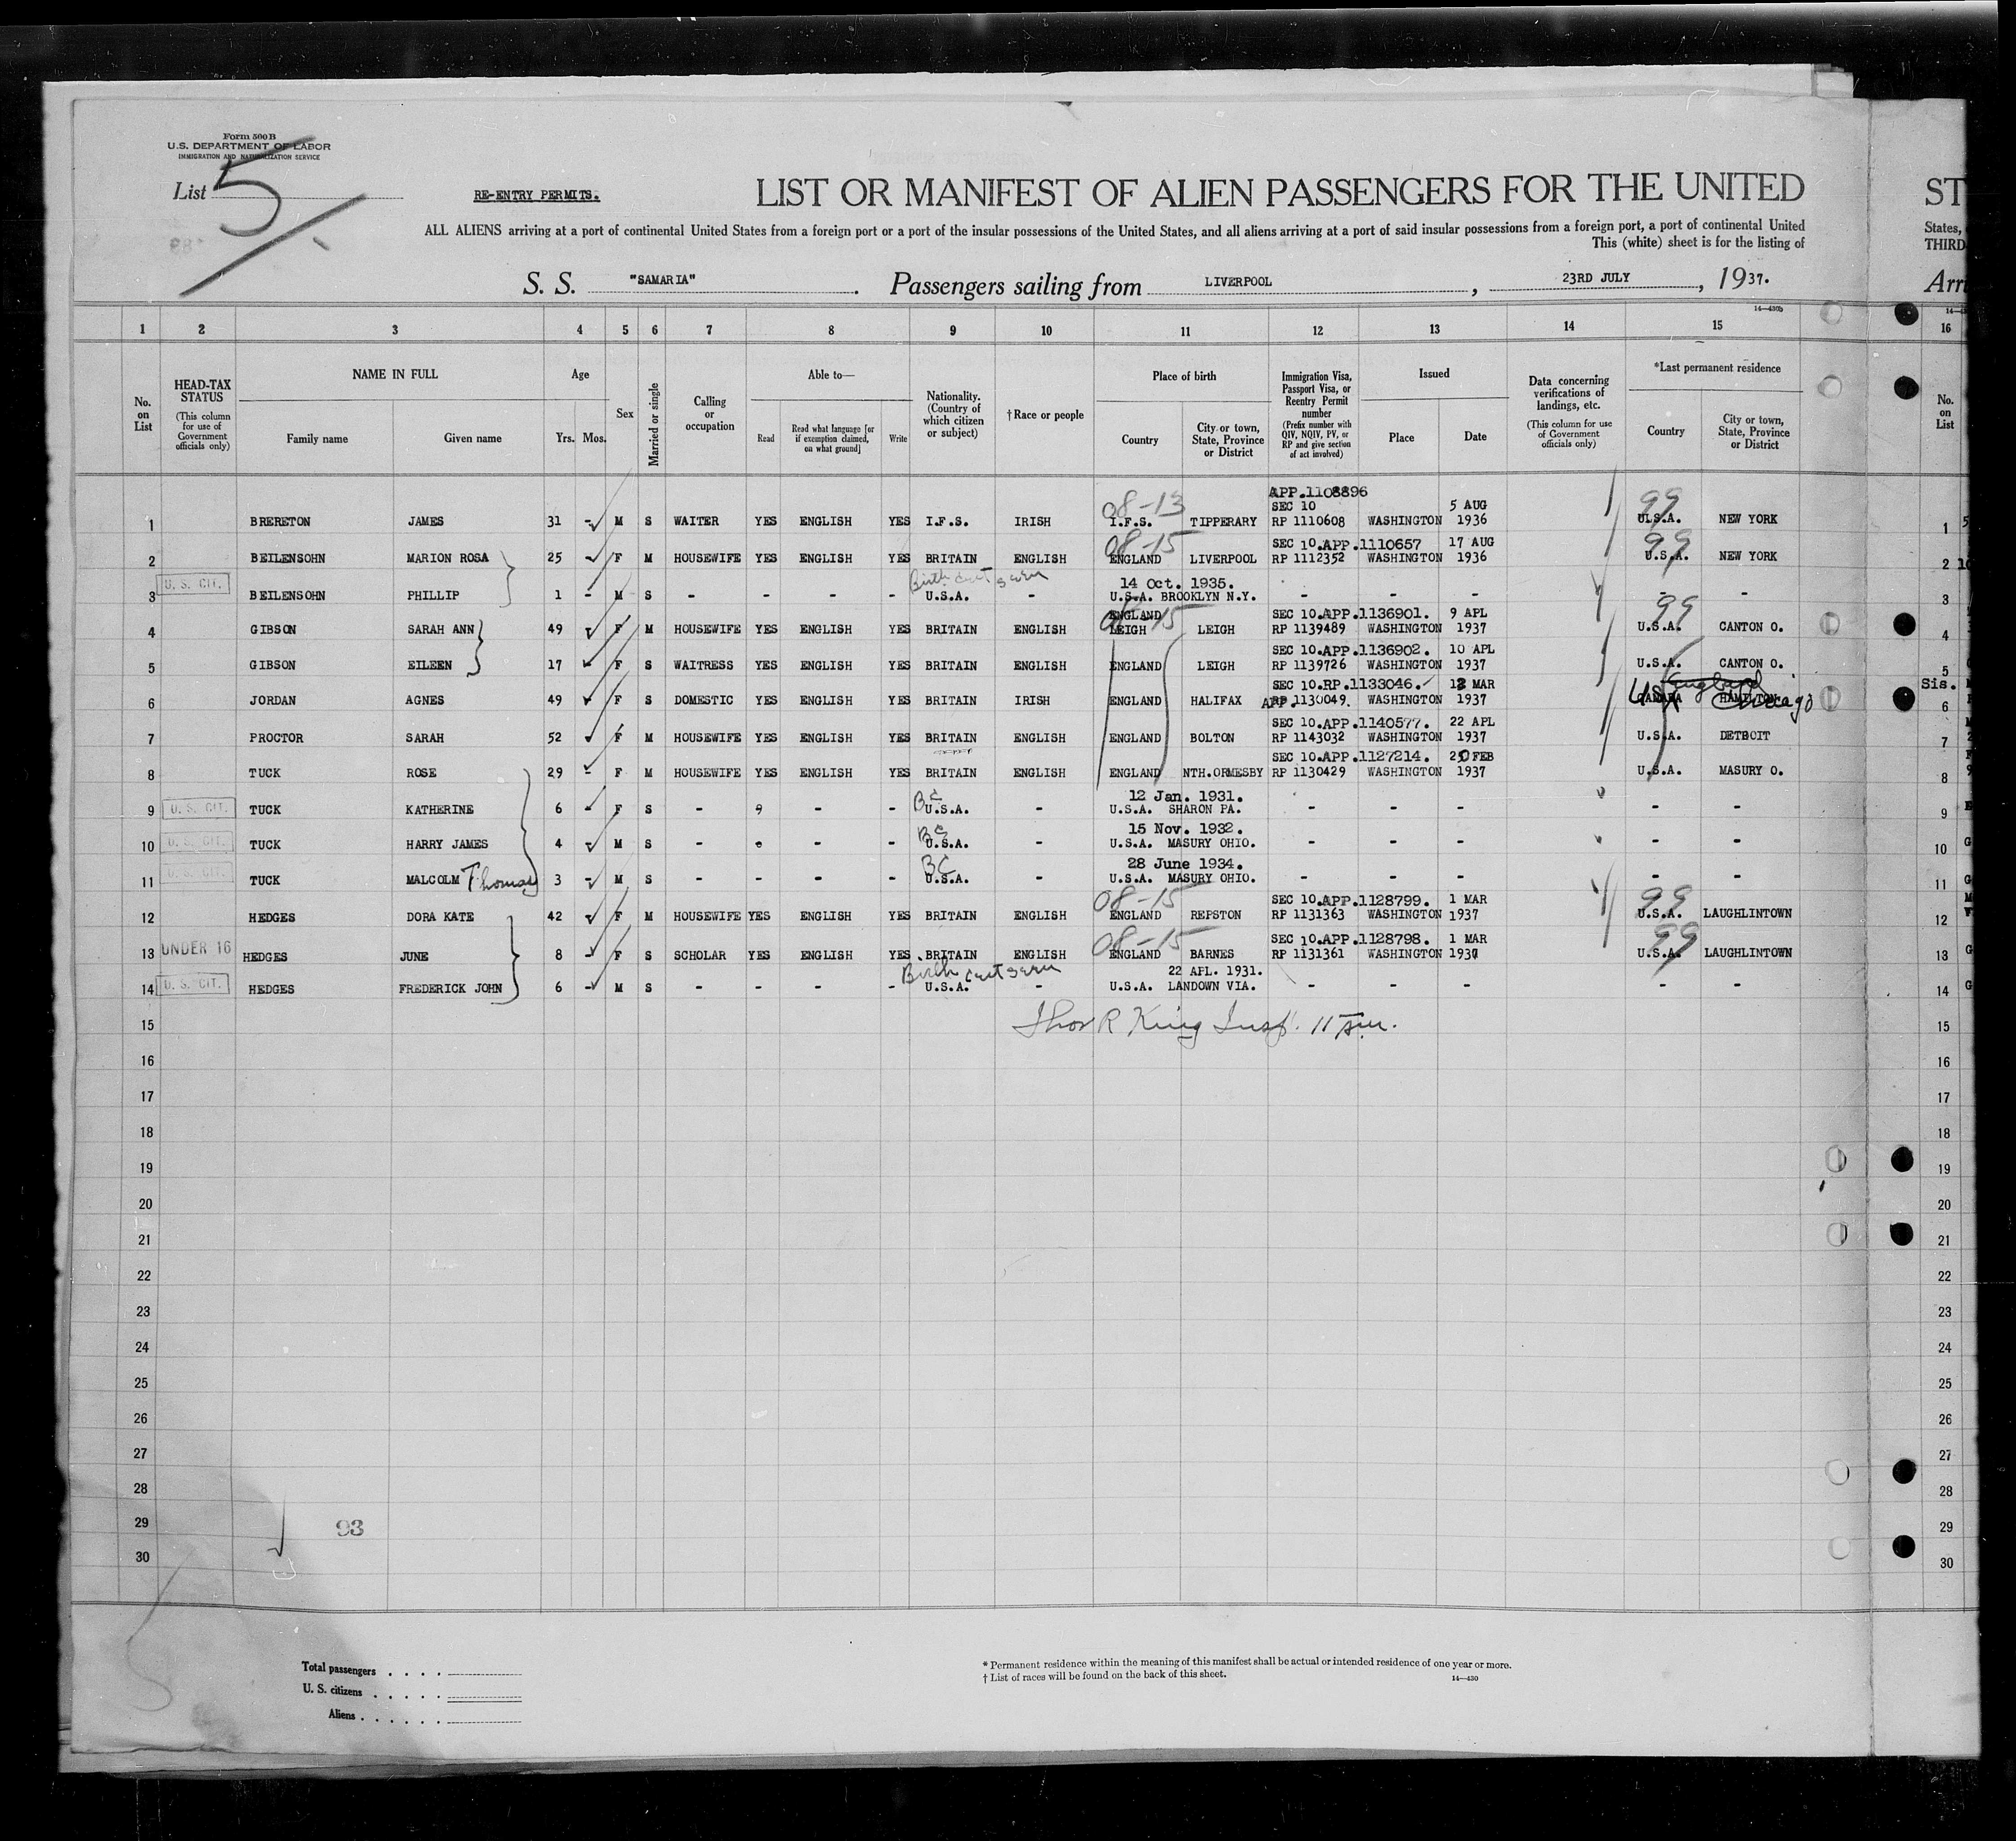 Form 500B
U.S. DEPARTMENT OF LABOR
IMMIGRATION AND NATURALIZATION SERVICE
List 5
RE-ENTRY PERMITS.
LIST OR MANIFEST OF ALIEN PASSENGERS FOR THE UNITED
ST
ALL ALIENS arriving at a port of continental United States from a foreign port or a port of the insular possessions of the United States, and all aliens arriving at a port of said insular possessions from a foreign port, a port of continental United
States,
This (white) sheet is for the listing of
THIRD
S. S. "SAMARIA". Passengers sailing from LIVERPOOL, 23RD JULY, 1937.
Arri
14—430b
1 2 3 4 5 6 7 8 9 10 11 12 13 14 15 16
No. on List
HEAD-TAX STATUS
(This column for use of Government officials only)
NAME IN FULL
Family name Given name
Age
Yrs. Mos.
Sex
Married or single
Calling or occupation
Able to—
Read
Read what language [or if exemption claimed, on what ground]
Write
Nationality. (Country of which citizen or subject)
†Race or people
Place of birth
Country
City or town, State, Province or District
Immigration Visa, Passport Visa, or Reentry Permit number
(Prefix number with QIV, NQIV, PV, or RP and give section of act involved)
Issued
Place Date
Data concerning verifications of landings, etc.
(This column for use of Government officials only)
*Last permanent residence
Country
City or town, State, Province or District
No. on List
08-13 APP.1108896 99
SEC 10 5 AUG
1 BRERETON JAMES 31 - M S WAITER YES ENGLISH YES I.F.S. IRISH I.F.S. TIPPERARY RP 1110608 WASHINGTON 1936 U.S.A. NEW YORK 1
08-15 SEC 10.APP.1110657 17 AUG 99
2 BEILENSOHN MARION ROSA 25 - F M HOUSEWIFE YES ENGLISH YES BRITAIN ENGLISH ENGLAND LIVERPOOL RP 1112352 WASHINGTON 1936 U.S.A. NEW YORK 2
U. S. CIT. Birth cert seen 14 Oct. 1935.
3 BEILENSOHN PHILLIP 1 - M S - - - - U.S.A. - U.S.A. BROOKLYN N.Y. - - - - - 3
ENGLAND 08-15 SEC 10.APP.1136901. 9 APL 99
4 GIBSON SARAH ANN 49 F M HOUSEWIFE YES ENGLISH YES BRITAIN ENGLISH LEIGH LEIGH RP 1139489 WASHINGTON 1937 U.S.A. CANTON O. 4
SEC 10.APP.1136902. 10 APL
5 GIBSON EILEEN 17 F S WAITRESS YES ENGLISH YES BRITAIN ENGLISH ENGLAND LEIGH RP 1139726 WASHINGTON 1937 U.S.A. CANTON O. 5
SEC 10.RP.1133046. 12 MAR England Sis.
6 JORDAN AGNES 49 F S DOMESTIC YES ENGLISH YES BRITAIN IRISH ENGLAND HALIFAX APP.1130049. WASHINGTON 1937 CANADA USA HAMILTON Chicago 6
SEC 10.APP.1140577. 22 APL
7 PROCTOR SARAH 52 F M HOUSEWIFE YES ENGLISH YES BRITAIN ENGLISH ENGLAND BOLTON RP 1143032 WASHINGTON 1937 U.S.A. DETROIT 7
SEC 10.APP.1127214. FEB
8 TUCK ROSE 29 - F M HOUSEWIFE YES ENGLISH YES BRITAIN ENGLISH ENGLAND NTH.ORMESBY RP 1130429 WASHINGTON 1937 U.S.A. MASURY O. 8
BC 12 Jan. 1931.
9 U. S. CIT. TUCK KATHERINE 6 - F S - - - U.S.A. - U.S.A. SHARON PA. - - - - - 9
BC 15 Nov. 1932.
10 U. S. CIT. TUCK HARRY JAMES 4 M S - - - U.S.A. - U.S.A. MASURY OHIO. - - - - - 10
BC 28 June 1934.
11 U. S. CIT. TUCK MALCOLM Thomas 3 - M S - - - - U.S.A. - U.S.A. MASURY OHIO. - - - - - 11
08-15 SEC 10.APP.1128799. 1 MAR 99
12 HEDGES DORA KATE 42 F M HOUSEWIFE YES ENGLISH YES BRITAIN ENGLISH ENGLAND REPSTON RP 1131363 WASHINGTON 1937 U.S.A. LAUGHLINTOWN 12
08-15 SEC 10.APP.1128798. 1 MAR 99
13 UNDER 16 HEDGES JUNE 8 - F S SCHOLAR YES ENGLISH YES BRITAIN ENGLISH ENGLAND BARNES RP 1131361 WASHINGTON 1937 U.S.A. LAUGHLINTOWN 13
Birth cert seen 22 APL. 1931.
14 U. S. CIT. HEDGES FREDERICK JOHN 6 - M S - - - - U.S.A. - U.S.A. LANDOWN VIA. - - - - - 14
15 Thos R King Insp. 15
16 16
17 17
18 18
19 19
20 20
21 21
22 22
23 23
24 24
25 25
26 26
27 27
28 28
29 93 29
30 30
Total passengers . . . .
U. S. citizens . . . . .
Aliens . . . . . .
* Permanent residence within the meaning of this manifest shall be actual or intended residence of one year or more.
† List of races will be found on the back of this sheet.
14—430